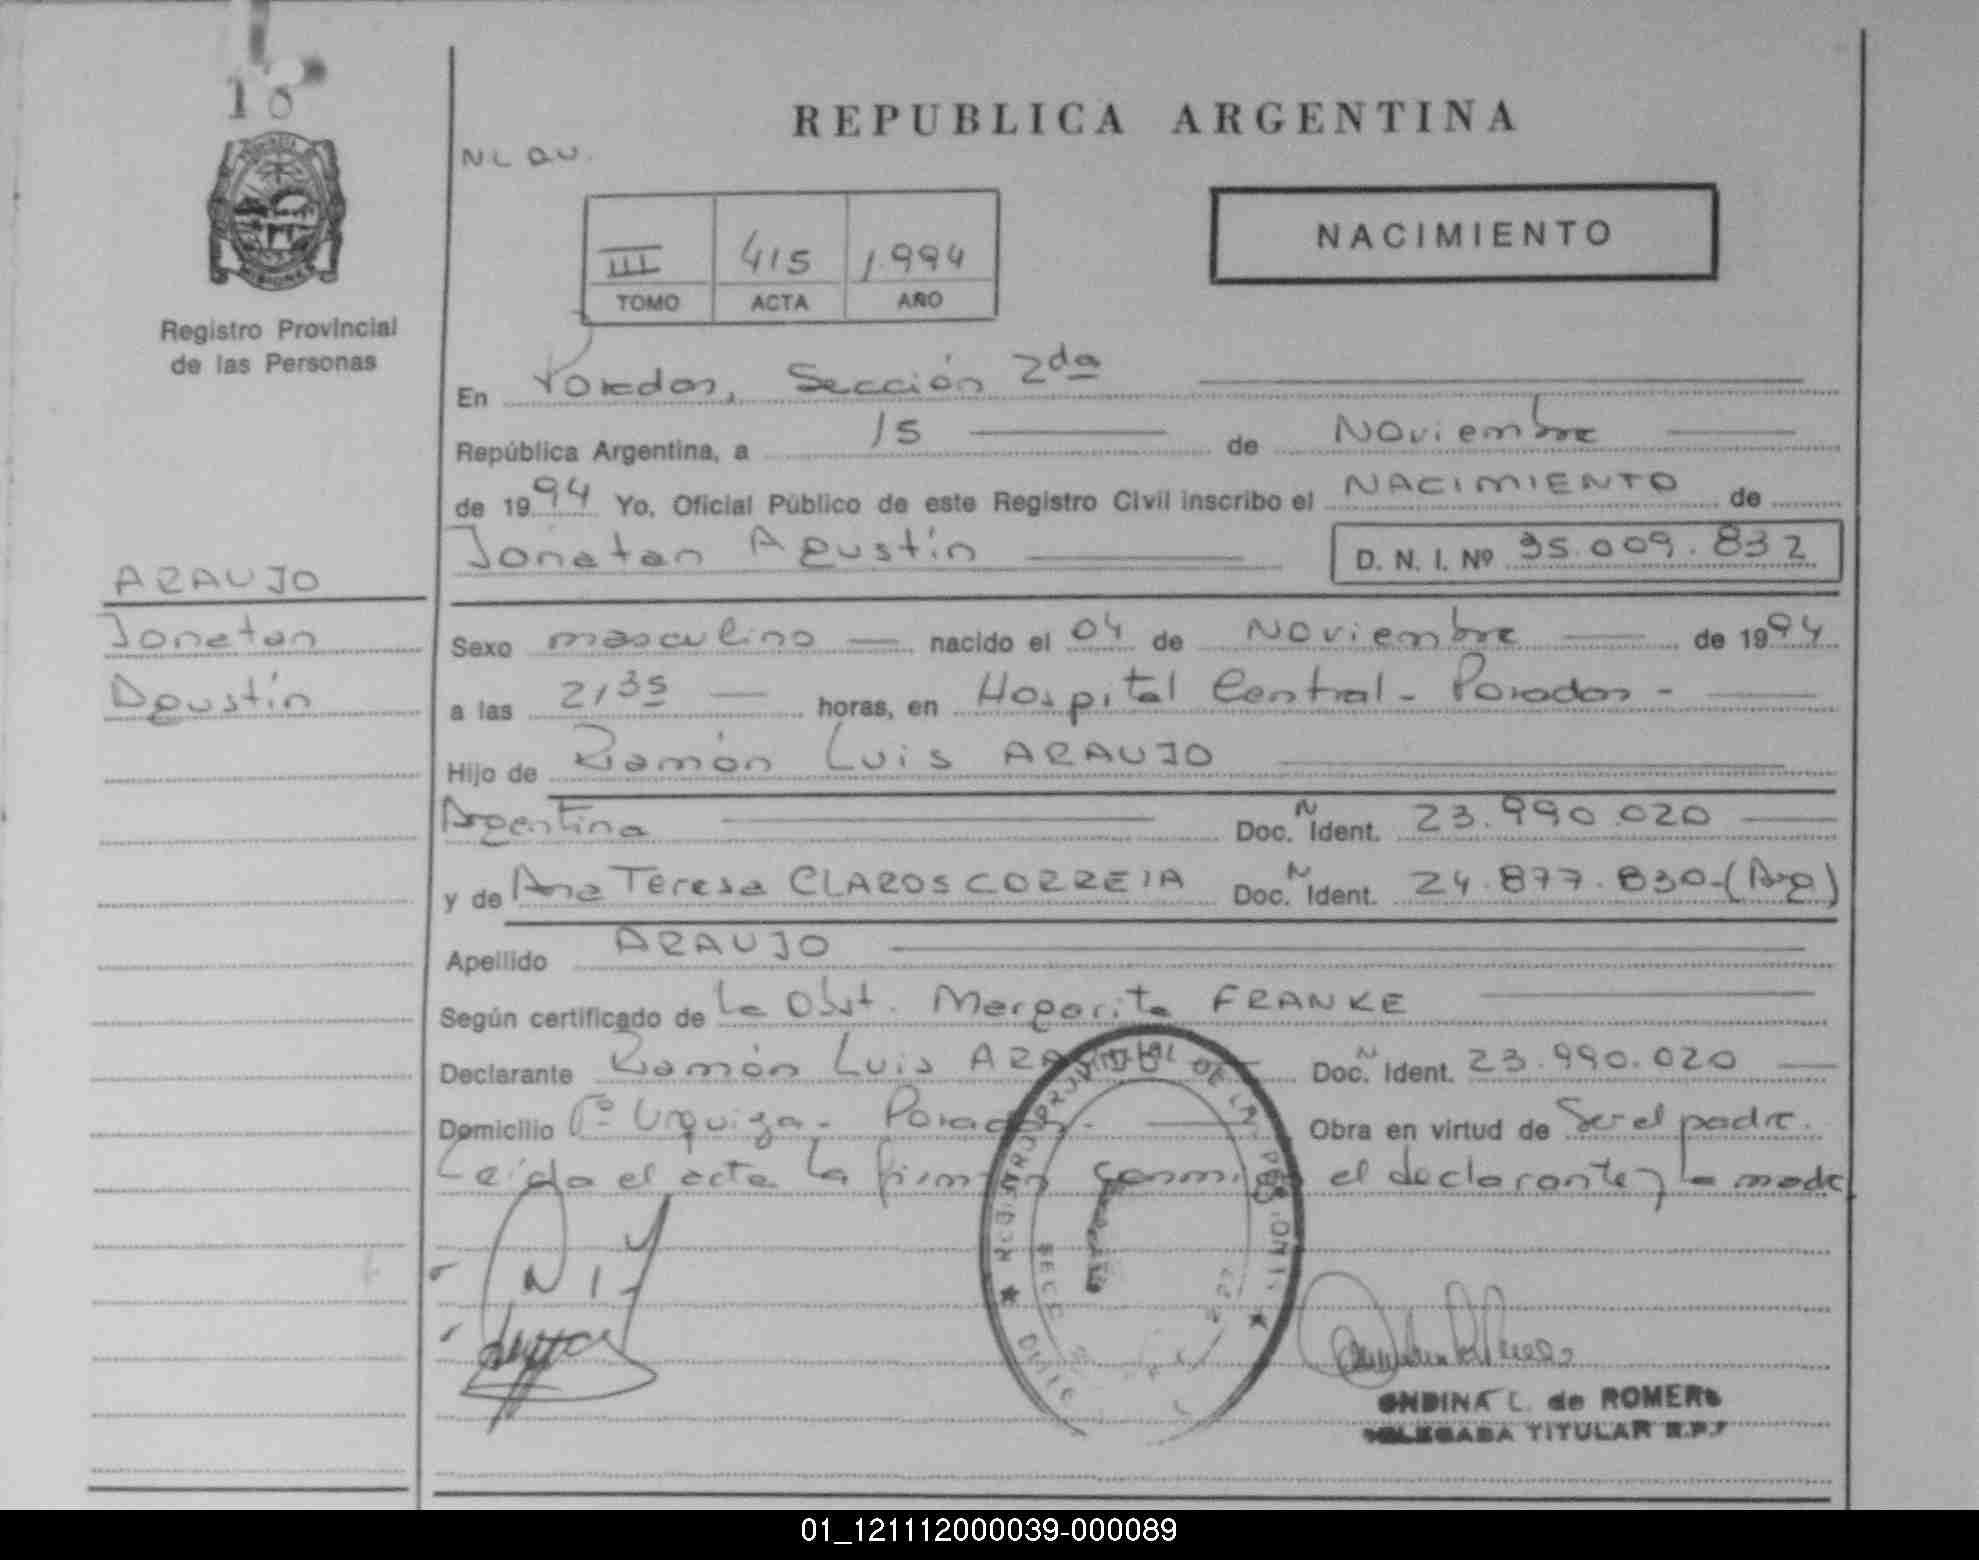 REPUBLICA ARGENTINA
NACIMIENTO
III 415 1.994
TOMO ACTA AÑO
Registro Provincial
de las Personas
En Posadas, Sección 2da
República Argentina, a 15 de Noviembre
de 1994 Yo, Oficial Público de este Registro Civil inscribo el NACIMIENTO de
Jonatan Agustín D. N. I. Nº 35.009.832
ARAUJO
Jonatan
Agustín
Sexo masculino nacido el 04 de Noviembre de 1994
a las 21,35 horas, en Hospital Central - Posadas -
Hijo de Ramón Luis ARAUJO
Argentina Doc. N Ident. 23.990.020
y de Ana Teresa CLAROS CORREIA Doc. N Ident. 24.877.830-(Arg)
Apellido ARAUJO
Según certificado de la Obst. Margarita FRANKE
Declarante Ramón Luis ARAUJO Doc. N Ident. 23.990.020
Domicilio Urquiza - Posadas - Obra en virtud de Ser el padre.
Leída el acta la firman conmigo el declarante y la madre
ONDINA L. de ROMERO
DELEGADA TITULAR R.P.P
01_121112000039-000089